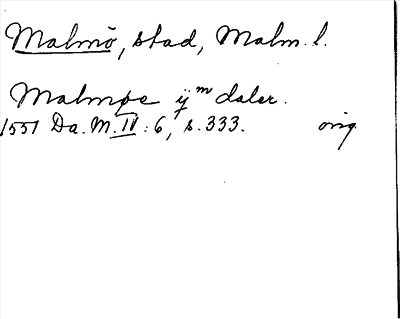 Malmö, stad, Malm. l.
Malmøe ijᵐ daler.
1551 Da. M. IV : 6, s. 333. orig.